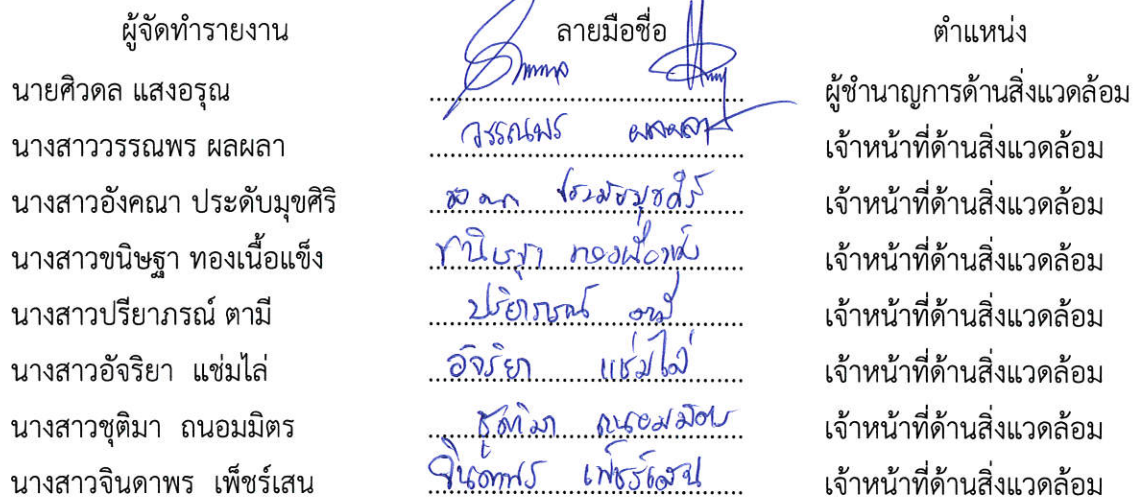 ผู้จัดทำรายงาน ลายมือชื่อ ตำแหน่ง
นายศิวดล แสงอรุณ ผู้ชำนาญการด้านสิ่งแวดล้อม
นางสาววรรณพร ผลผลา วรรณพร ผลผลา เจ้าหน้าที่ด้านสิ่งแวดล้อม
นางสาวอังคณา ประดับมุขศิริ ประดับมุขศิริ เจ้าหน้าที่ด้านสิ่งแวดล้อม
นางสาวขนิษฐา ทองเนื้อแข็ง ขนิษฐา ทองเนื้อแข็ง เจ้าหน้าที่ด้านสิ่งแวดล้อม
นางสาวปรียาภรณ์ ตามี ปรียาภรณ์ ตามี เจ้าหน้าที่ด้านสิ่งแวดล้อม
นางสาวอัจริยา แช่มไล่ อัจริยา แช่มไล่ เจ้าหน้าที่ด้านสิ่งแวดล้อม
นางสาวชุติมา ถนอมมิตร ชุติมา ถนอมมิตร เจ้าหน้าที่ด้านสิ่งแวดล้อม
นางสาวจินดาพร เพ็ชร์เสน จินดาพร เพ็ชร์เสน เจ้าหน้าที่ด้านสิ่งแวดล้อม